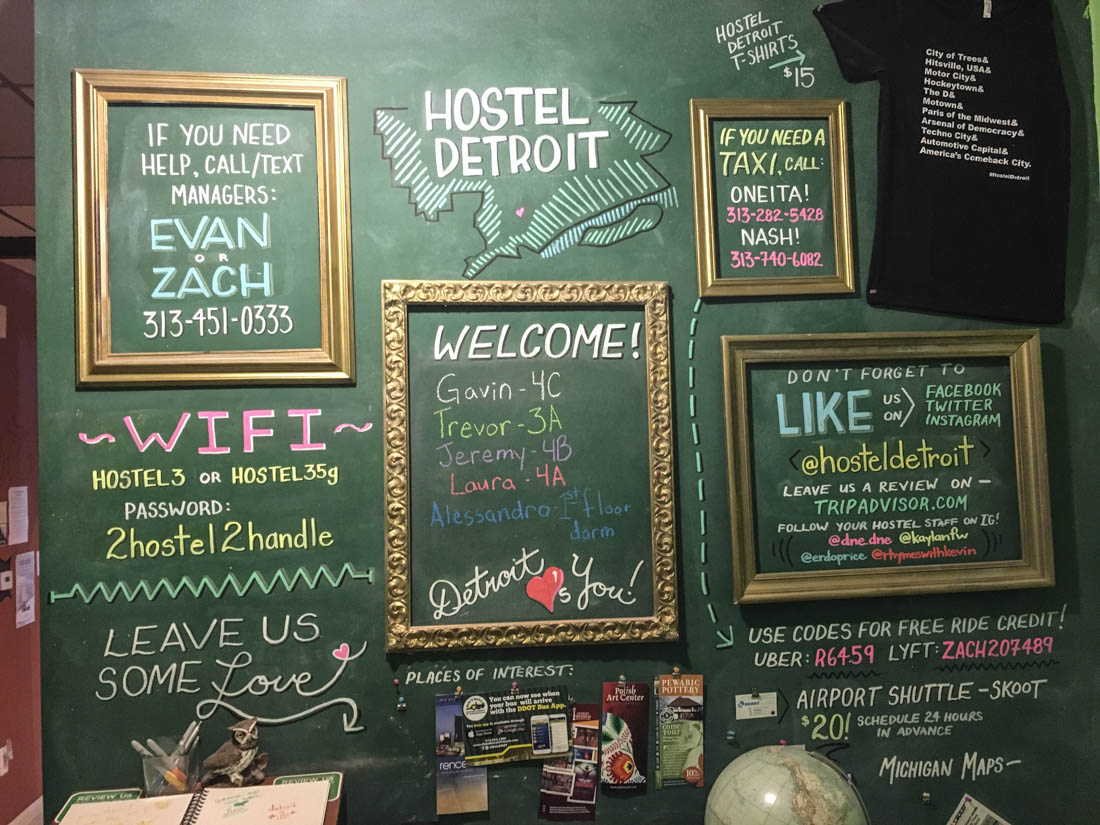 HOSTEL
DETROIT
T-SHIRTS
$15
City of Trees&
Hitsville, USA&
Motor City&
Hockeytown&
The D&
Motown&
Paris of the Midwest&
Arsenal of Democracy&
Techno City&
Automotive Capital&
America's Comeback City.
#HostelDetroit
IF YOU NEED
HELP, CALL/TEXT
MANAGERS:
EVAN
OR
ZACH
313-451-0333
HOSTEL
DETROIT
IF YOU NEED A
TAXI, CALL:
ONEITA!
313-282-5428
NASH!
313-740-6082
WELCOME!
Gavin - 4C
Trevor - 3A
Jeremy - 4B
Laura - 4A
Alessandro - 1st floor
dorm
Detroit ♥s You!
~WIFI~
HOSTEL3 OR HOSTEL35g
PASSWORD:
2hostel2handle
LEAVE US
SOME Love
DON'T FORGET TO
LIKE US ON > FACEBOOK
TWITTER
INSTAGRAM
<@hosteldetroit>
LEAVE US A REVIEW ON —
TRIPADVISOR.COM
FOLLOW YOUR HOSTEL STAFF ON IG!
@dne.dne @kaylanfw
@erdoprice @rhymeswithkevin
USE CODES FOR FREE RIDE CREDIT!
UBER: R6459 LYFT: ZACH207489
AIRPORT SHUTTLE - SKOOT
$20! SCHEDULE 24 HOURS
IN ADVANCE
MICHIGAN MAPS —
PLACES OF INTEREST:
You can now see when
your bus will arrive
with the DDOT Bus App.
Polish
Art Center
PEWABIC
POTTERY
SKOOT
REVIEW US
REVIEW US